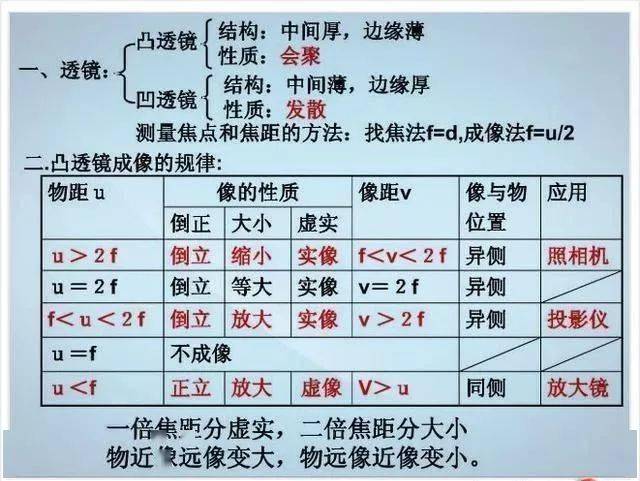 凸透镜 结构：中间厚，边缘薄
性质：会聚
一、透镜：
凹透镜 结构：中间薄，边缘厚
性质：发散
测量焦点和焦距的方法：找焦法f=d,成像法f=u/2
二.凸透镜成像的规律:
物距 u 像的性质 像距v 像与物位置 应用
倒正 大小 虚实
u＞2f 倒立 缩小 实像 f＜v＜2f 异侧 照相机
u＝2f 倒立 等大 实像 v＝2f 异侧
f＜u＜2f 倒立 放大 实像 v＞2f 异侧 投影仪
u＝f 不成像
u＜f 正立 放大 虚像 V＞u 同侧 放大镜
一倍焦距分虚实，二倍焦距分大小
物近像远像变大，物远像近像变小。